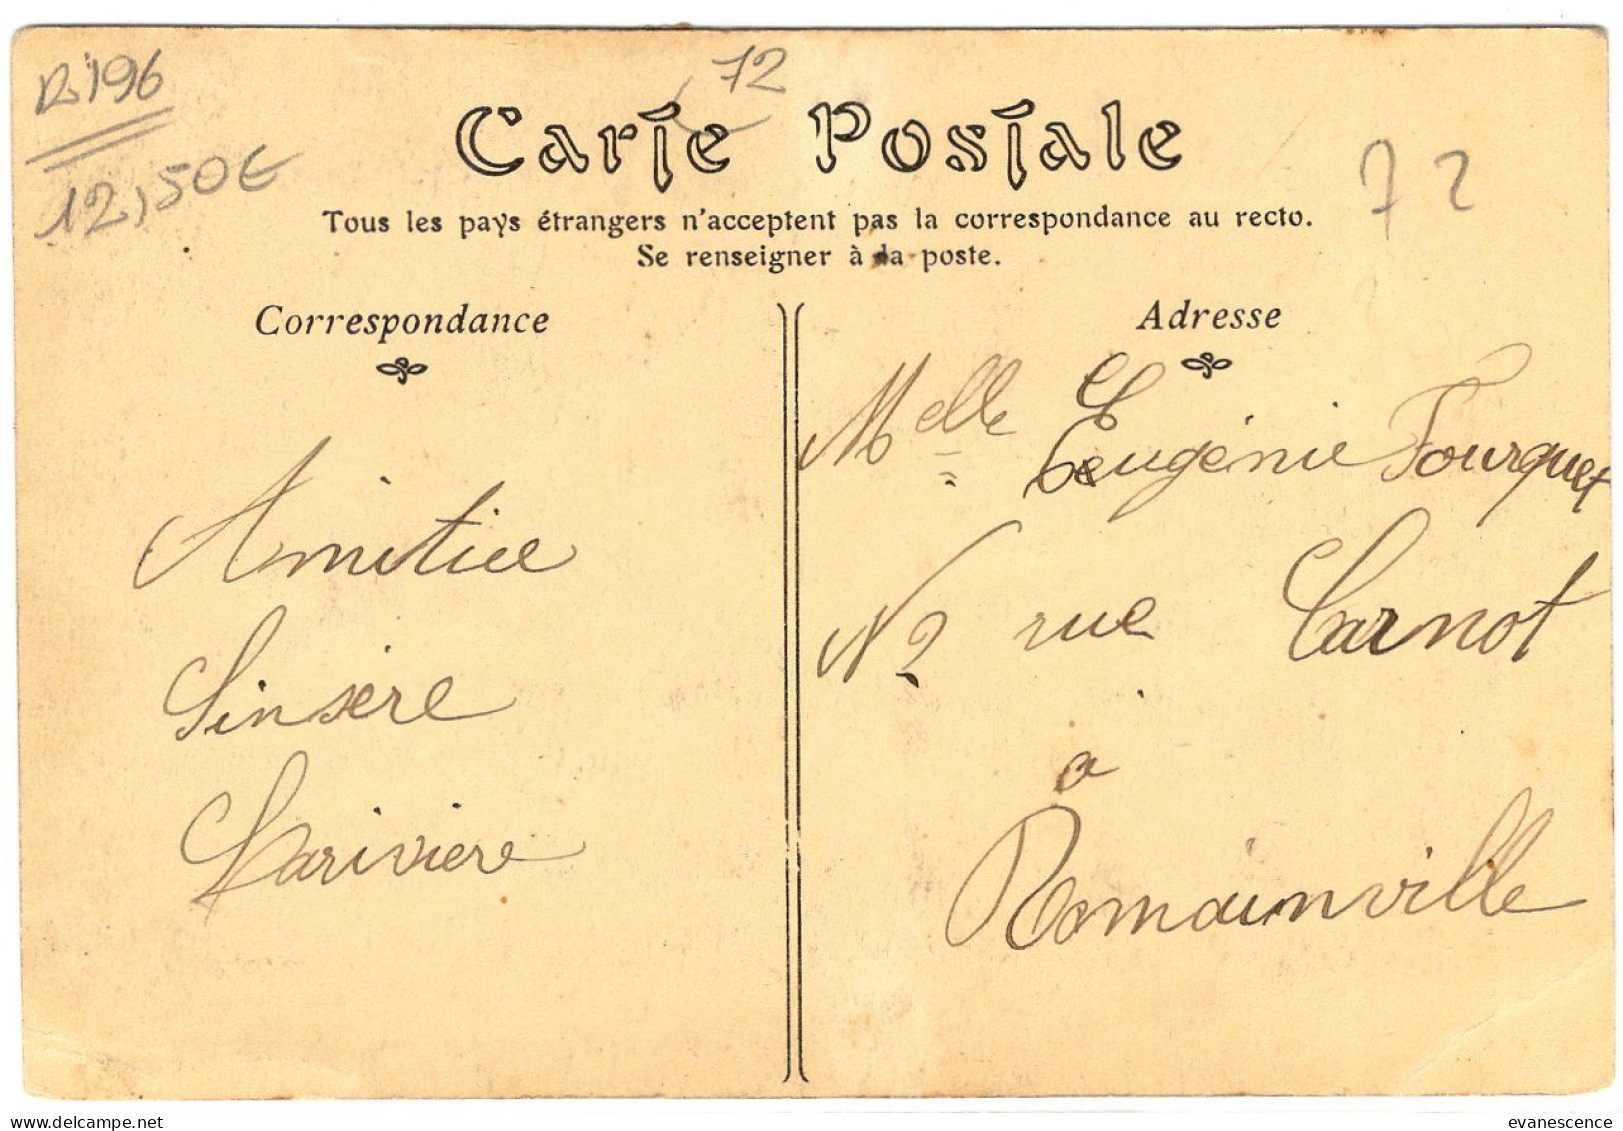 R196
12,50€
72
Carte Postale
72
Tous les pays étrangers n'acceptent pas la correspondance au recto.
Se renseigner à la poste.
Correspondance
Amitiee
Sinsère
Lariviere
Adresse
Melle Eugénie Fourquet
N 2 rue Carnot
a
Romainville
evanescence